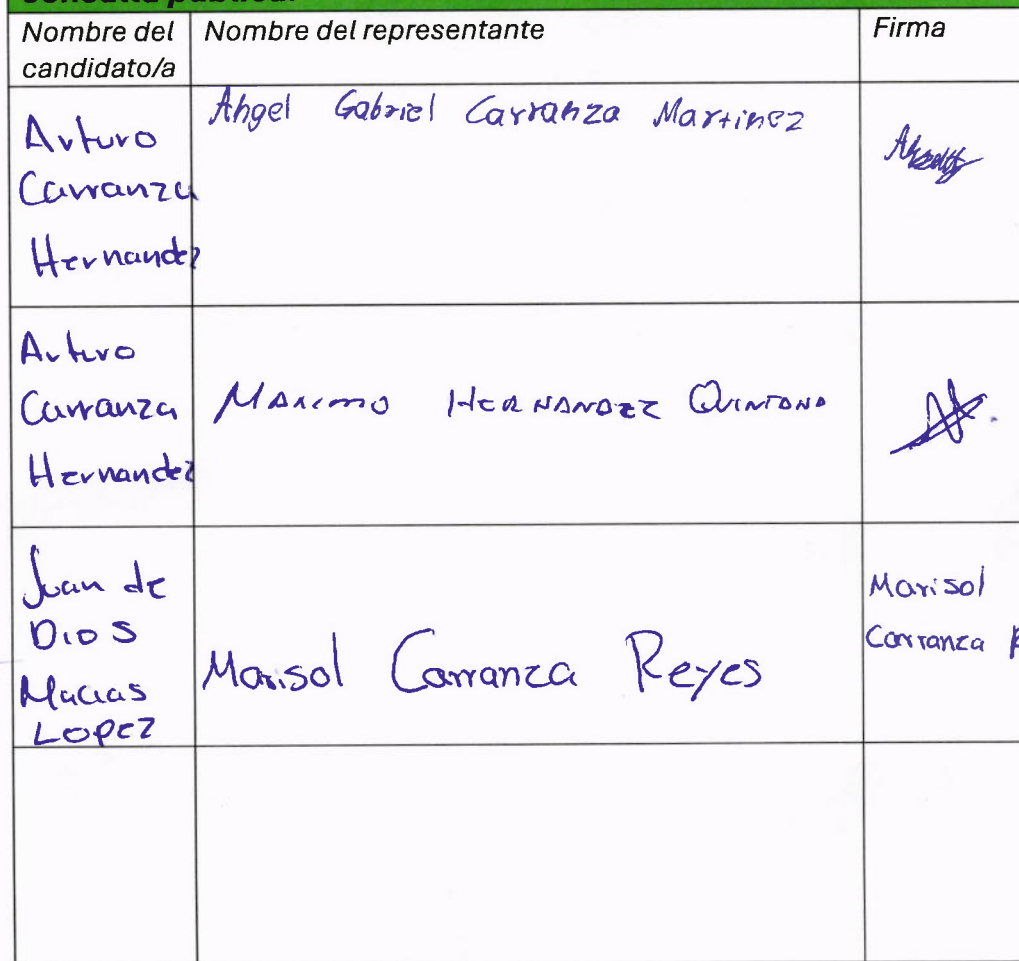 consulta pública.
Nombre del
candidato/a
Nombre del representante
Firma
Arturo
Carranza
Hernandez
Angel Gabriel Carranza Martinez
Arturo
Carranza
Hernandez
Maximo Hernandez Quintana
Juan de
Dios
Macias
Lopez
Marisol Carranza Reyes
Marisol
Carranza R